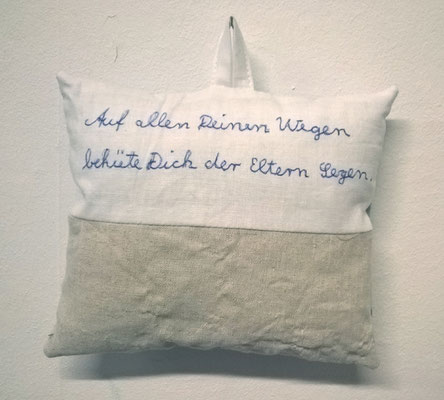 Auf allen Deinen Wegen
behüte Dich der Eltern Segen.